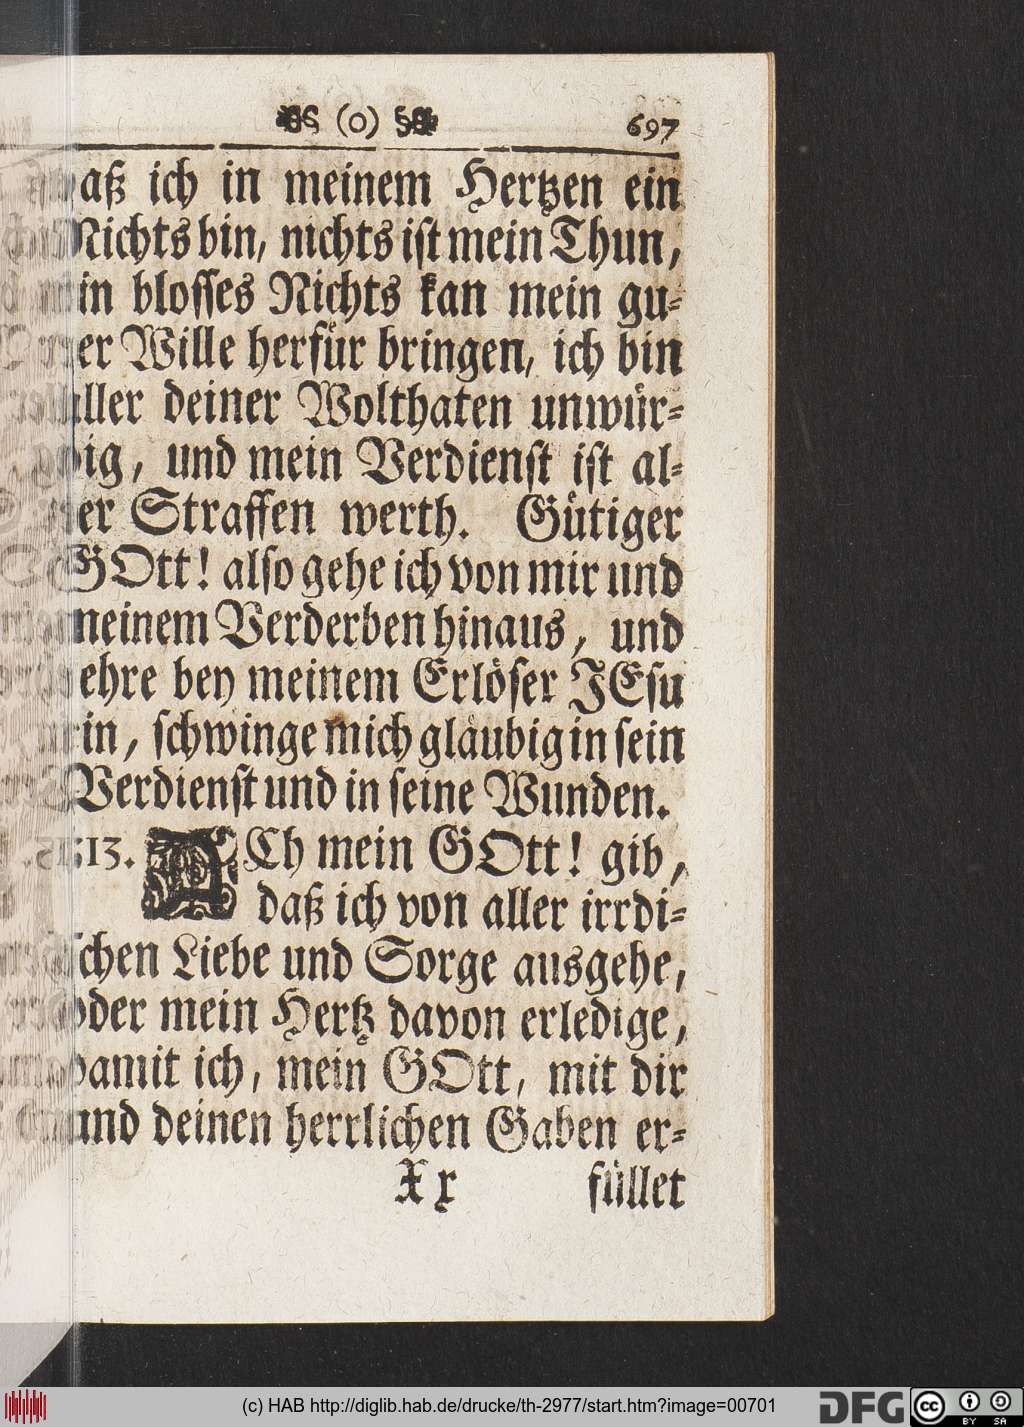 (o) 697
daß ich in meinem Hertzen ein
Nichts bin, nichts ist mein Thun,
ein blosses Nichts kan mein gu-
ter Wille herfür bringen, ich bin
aller deiner Wolthaten unwür-
dig, und mein Verdienst ist al-
ler Straffen werth. Gütiger
GOtt! also gehe ich von mir und
meinem Verderben hinaus, und
kehre bey meinem Erlöser JEsu
ein, schwinge mich gläubig in sein
Verdienst und in seine Wunden.
13. ACh mein GOtt! gib,
daß ich von aller irrdi-
schen Liebe und Sorge ausgehe,
oder mein Hertz davon erledige,
damit ich, mein GOtt, mit dir
und deinen herrlichen Gaben er-
Xx füllet
(c) HAB http://diglib.hab.de/drucke/th-2977/start.htm?image=00701 DFG cc BY SA